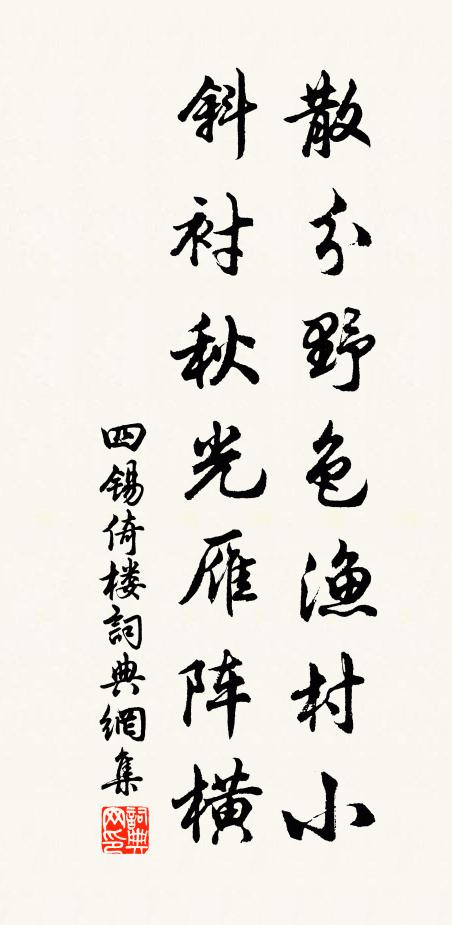 散分野色渔村小
斜衬秋光雁阵横
四锡倚楼詞典網集
詞典网印